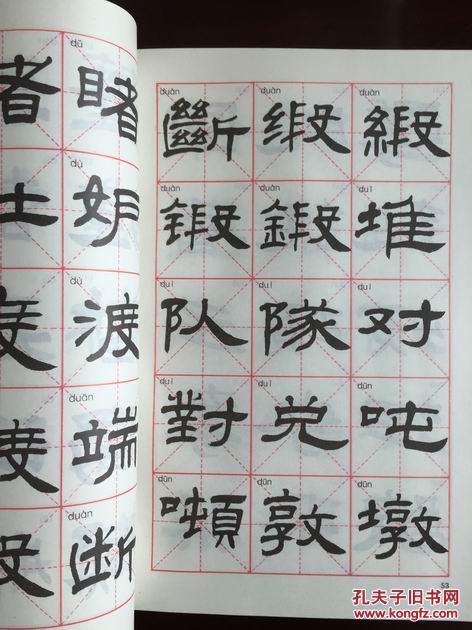 dǔ
睹
dù
妒
dù
渡
duān
端
duàn
断
duàn duàn duàn
斷 缎 緞
duàn duàn duī
锻 鍛 堆
duì duì duì
队 隊 对
duì duì dūn
對 兑 吨
dūn dūn dūn
噸 敦 墩
53
孔夫子旧书网
www.kongfz.com